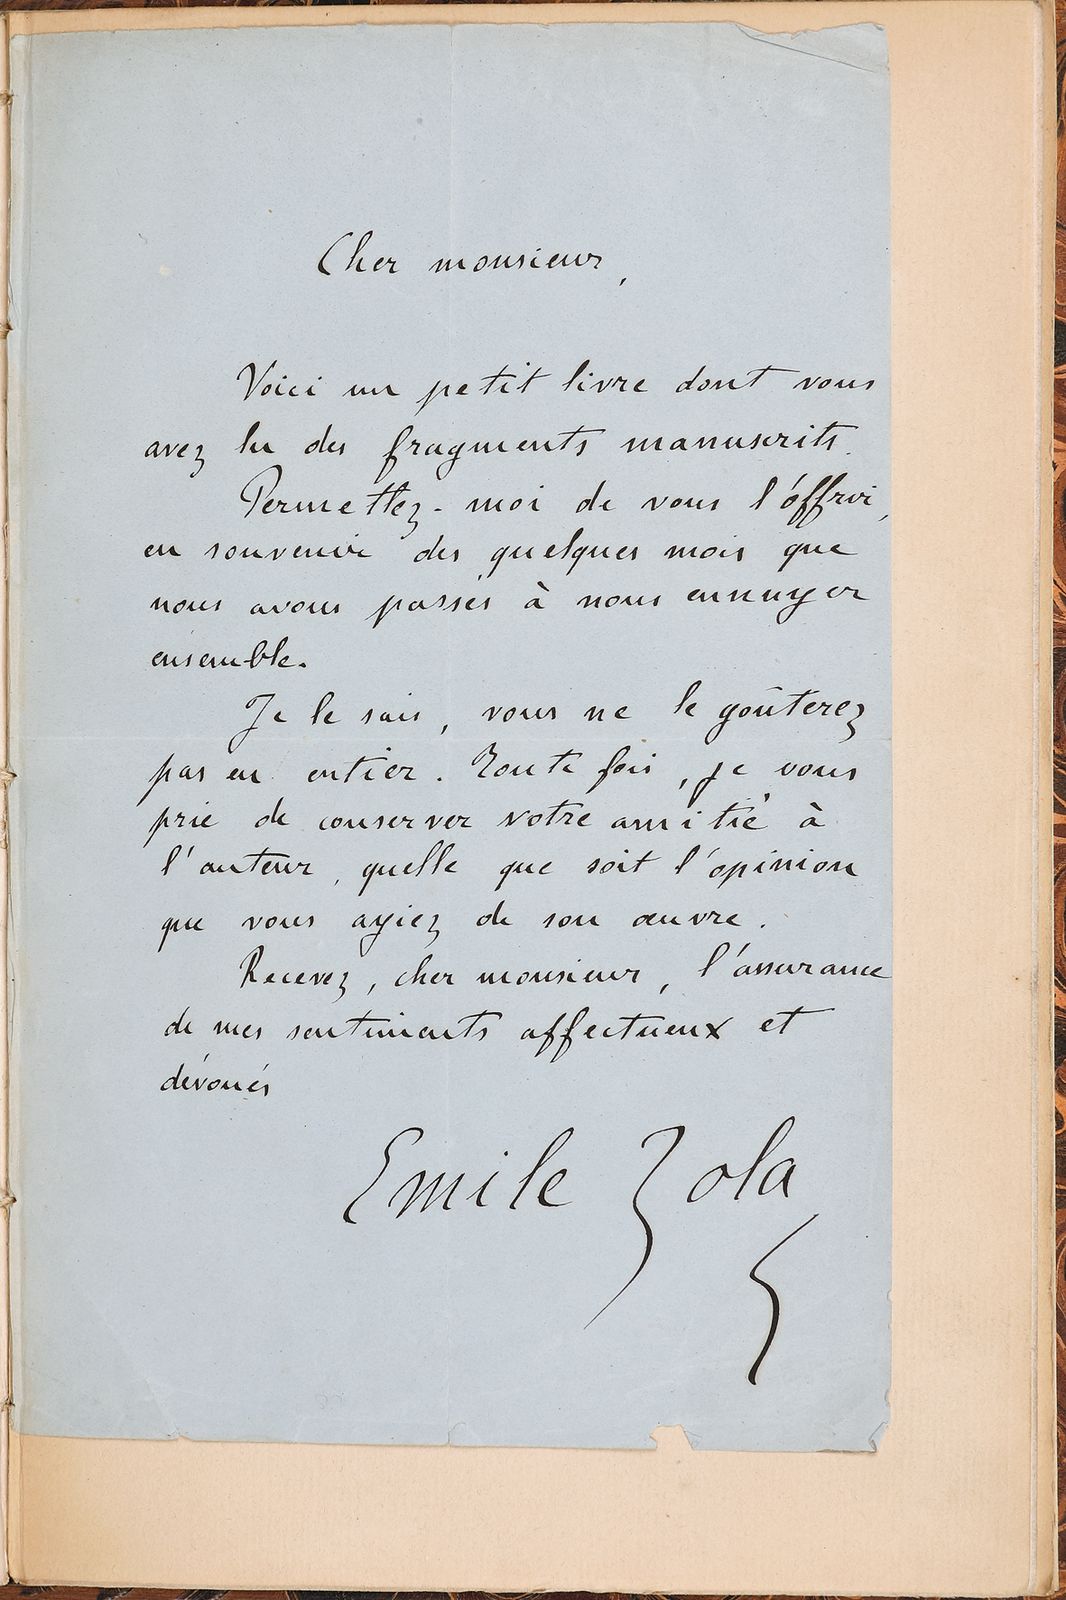 Cher monsieur,
Voici un petit livre dont vous
avez lu des fragments manuscrits.
Permettez-moi de vous l'offrir,
en souvenir des quelques mois que
nous avons passés à nous ennuyer
ensemble.
Je le sais, vous ne le goûterez
pas en entier. Toute fois, je vous
prie de conserver votre amitié à
l'auteur, quelle que soit l'opinion
que vous ayiez de son œuvre.
Recevez, cher monsieur, l'assurance
de mes sentiments affectueux et
dévoués
Emile Zola